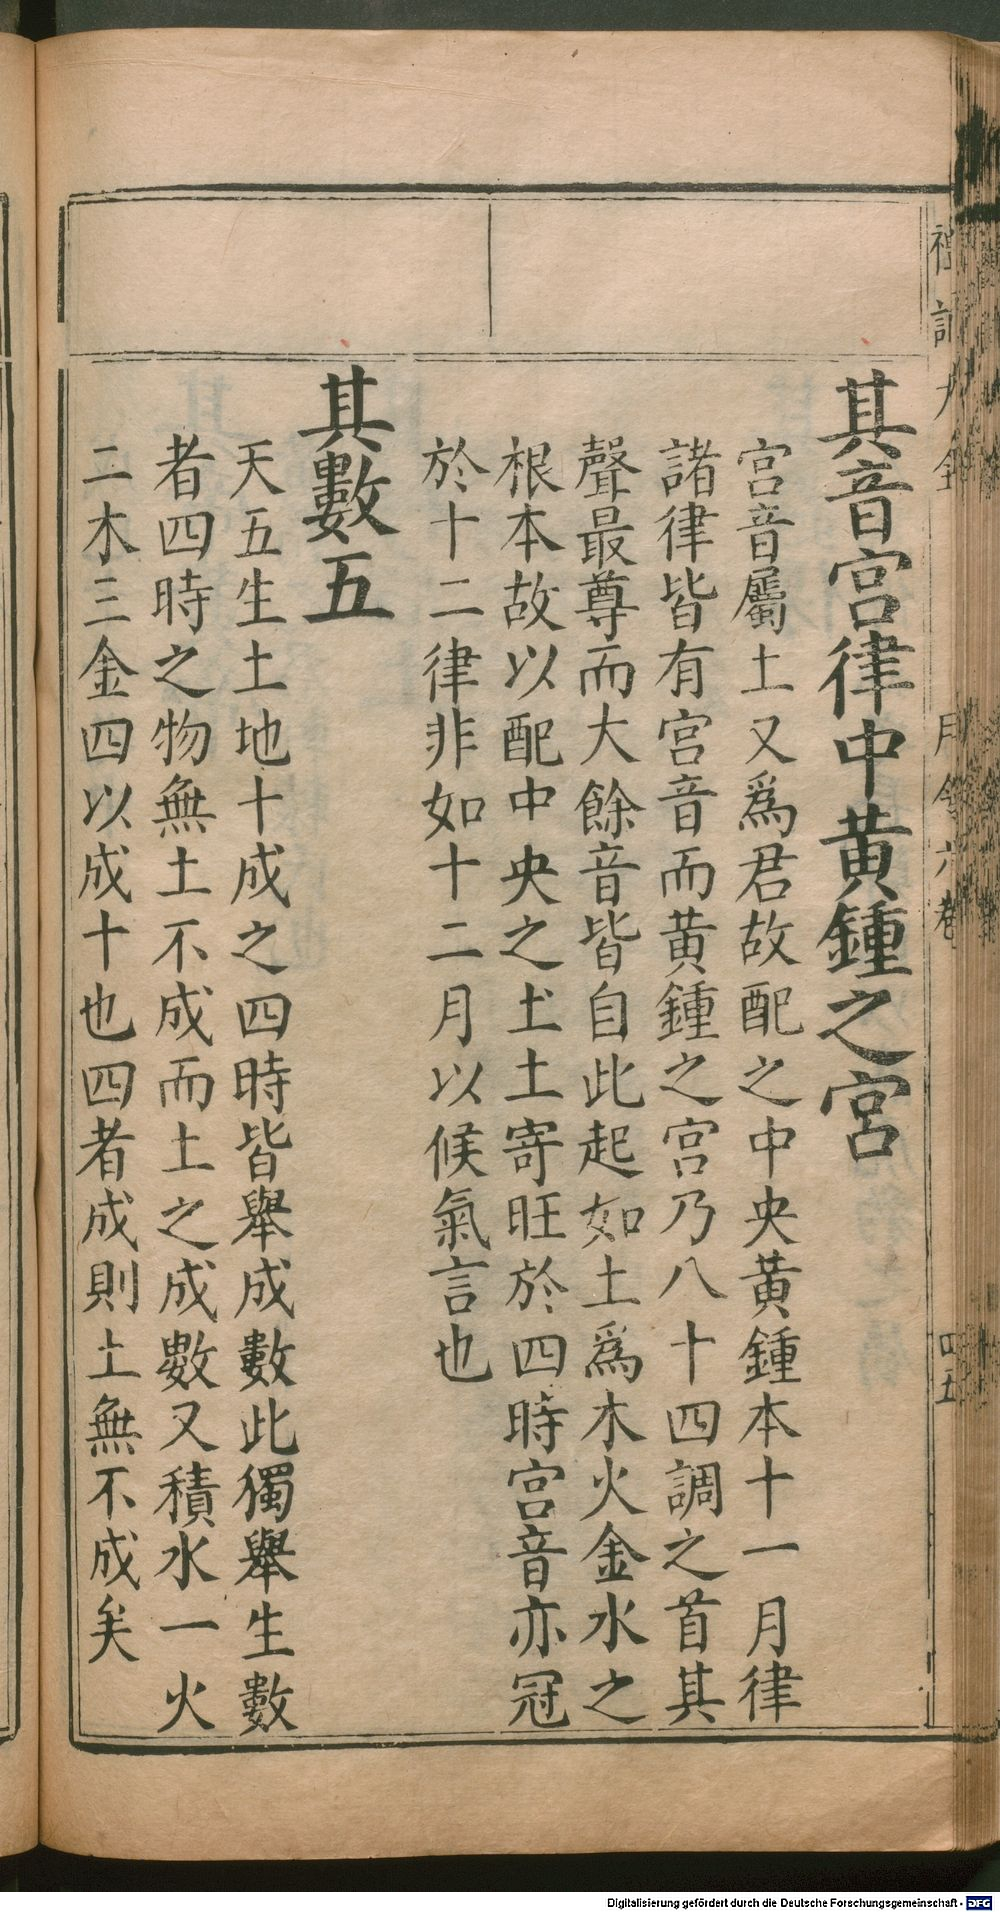 禮記大全 月令六卷 四五
其音宮律中黃鍾之宮
宮音屬土又爲君故配之中央黃鍾本十一月律
諸律皆有宮音而黃鍾之宮乃八十四調之首其
聲最尊而大餘音皆自此起如土爲木火金水之
根本故以配中央之土土寄旺於四時宮音亦冠
於十二律非如十二月以候氣言也
其數五
天五生土地十成之四時皆舉成數此獨舉生數
者四時之物無土不成而土之成數又積水一火
二木三金四以成十也四者成則土無不成矣
Digitalisierung gefördert durch die Deutsche Forschungsgemeinschaft - DFG